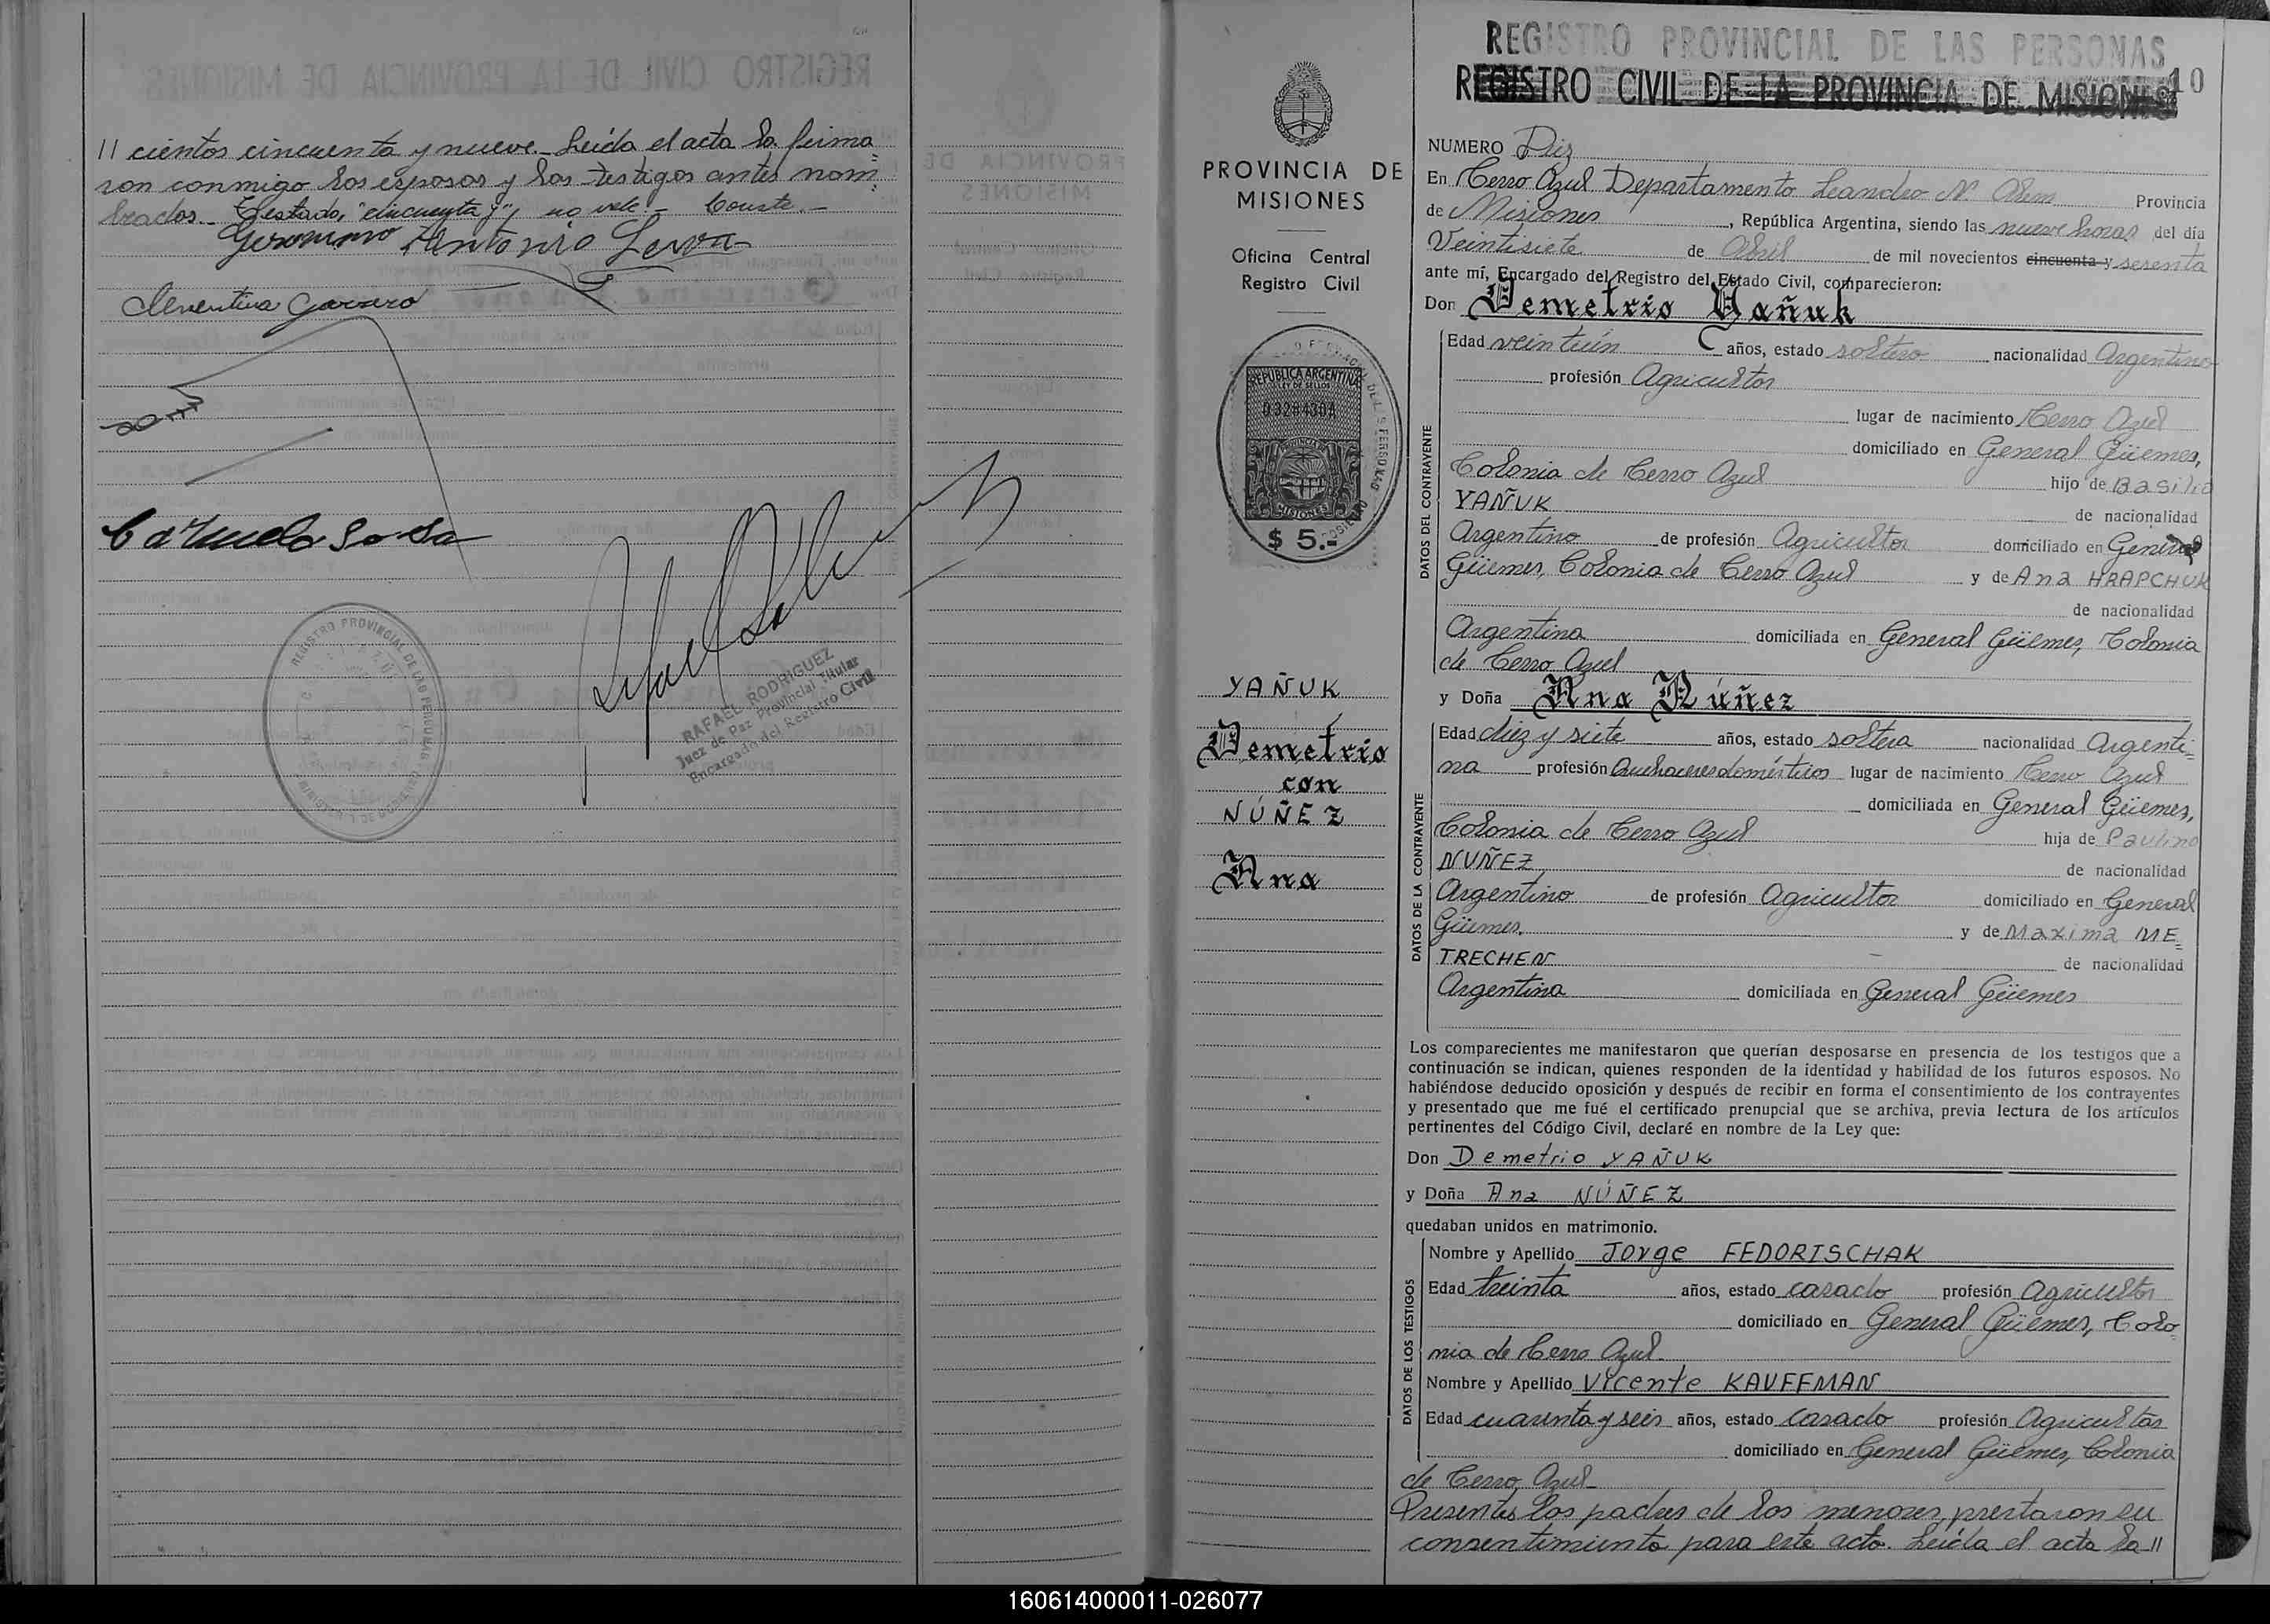 // cientos cincuenta y nueve.- Leída el acta la firma=
ron conmigo los esposos y los testigos antes nom=
brados.- Testado, "cincuenta y", no vale - Conste.-
Geronimo Antonio
Clementina
Sosa
REGISTRO PROVINCIAL DE LAS PERSONAS
RAFAEL RODRIGUEZ
Juez de Paz Provincial Titular
Encargado del Registro Civil
PROVINCIA DE
MISIONES
Oficina Central
Registro Civil
REPUBLICA ARGENTINA
LEY DE SELLOS
PROVINCIA
MISIONES
$ 5.-
YAÑUK
Demetrio
con
NÚÑEZ
Ana
REGISTRO PROVINCIAL DE LAS PERSONAS
REGISTRO CIVIL DE LA PROVINCIA DE MISIONES
10
NUMERO Diez
En Cerro Azul Departamento Leandro N. Alem Provincia
de Misiones, República Argentina, siendo las nueve horas del día
Veintisiete de Abril de mil novecientos cincuenta y sesenta
ante mí, Encargado del Registro del Estado Civil, comparecieron:
Don Demetrio Yañuk
DATOS DEL CONTRAYENTE
Edad veintiún años, estado soltero nacionalidad Argentino
profesión Agricultor
lugar de nacimiento Cerro Azul
domiciliado en General Güemes,
Colonia de Cerro Azul hijo de Basilio
YAÑUK de nacionalidad
Argentino de profesión Agricultor domiciliado en General
Güemes, Colonia de Cerro Azul y de Ana HRAPCHUK
de nacionalidad
Argentina domiciliada en General Güemes, Colonia
de Cerro Azul
y Doña Ana Núñez
DATOS DE LA CONTRAYENTE
Edad diez y siete años, estado soltera nacionalidad Argenti=
na profesión Quehaceres domésticos lugar de nacimiento Cerro Azul
domiciliada en General Güemes,
Colonia de Cerro Azul hija de Paulino
NUÑEZ de nacionalidad
Argentino de profesión Agricultor domiciliado en General
Güemes. y de Maxima ME=
TRECHEN de nacionalidad
Argentina domiciliada en General Güemes
Los comparecientes me manifestaron que querían desposarse en presencia de los testigos que a
continuación se indican, quienes responden de la identidad y habilidad de los futuros esposos. No
habiéndose deducido oposición y después de recibir en forma el consentimiento de los contrayentes
y presentado que me fué el certificado prenupcial que se archiva, previa lectura de los artículos
pertinentes del Código Civil, declaré en nombre de la Ley que:
Don Demetrio YAÑUK
y Doña Ana NÚÑEZ
quedaban unidos en matrimonio.
DATOS DE LOS TESTIGOS
Nombre y Apellido Jorge FEDORISCHAK
Edad treinta años, estado casado profesión Agricultor
domiciliado en General Güemes, Colo=
nia de Cerro Azul.
Nombre y Apellido Vicente KAUFFMAN
Edad cuarenta y seis años, estado Casado profesión Agricultor
domiciliado en General Güemes, Colonia
de Cerro Azul.
Presentes los padres de los menores, prestaron su
consentimiento para este acto. Leída el acta la //
160614000011-026077